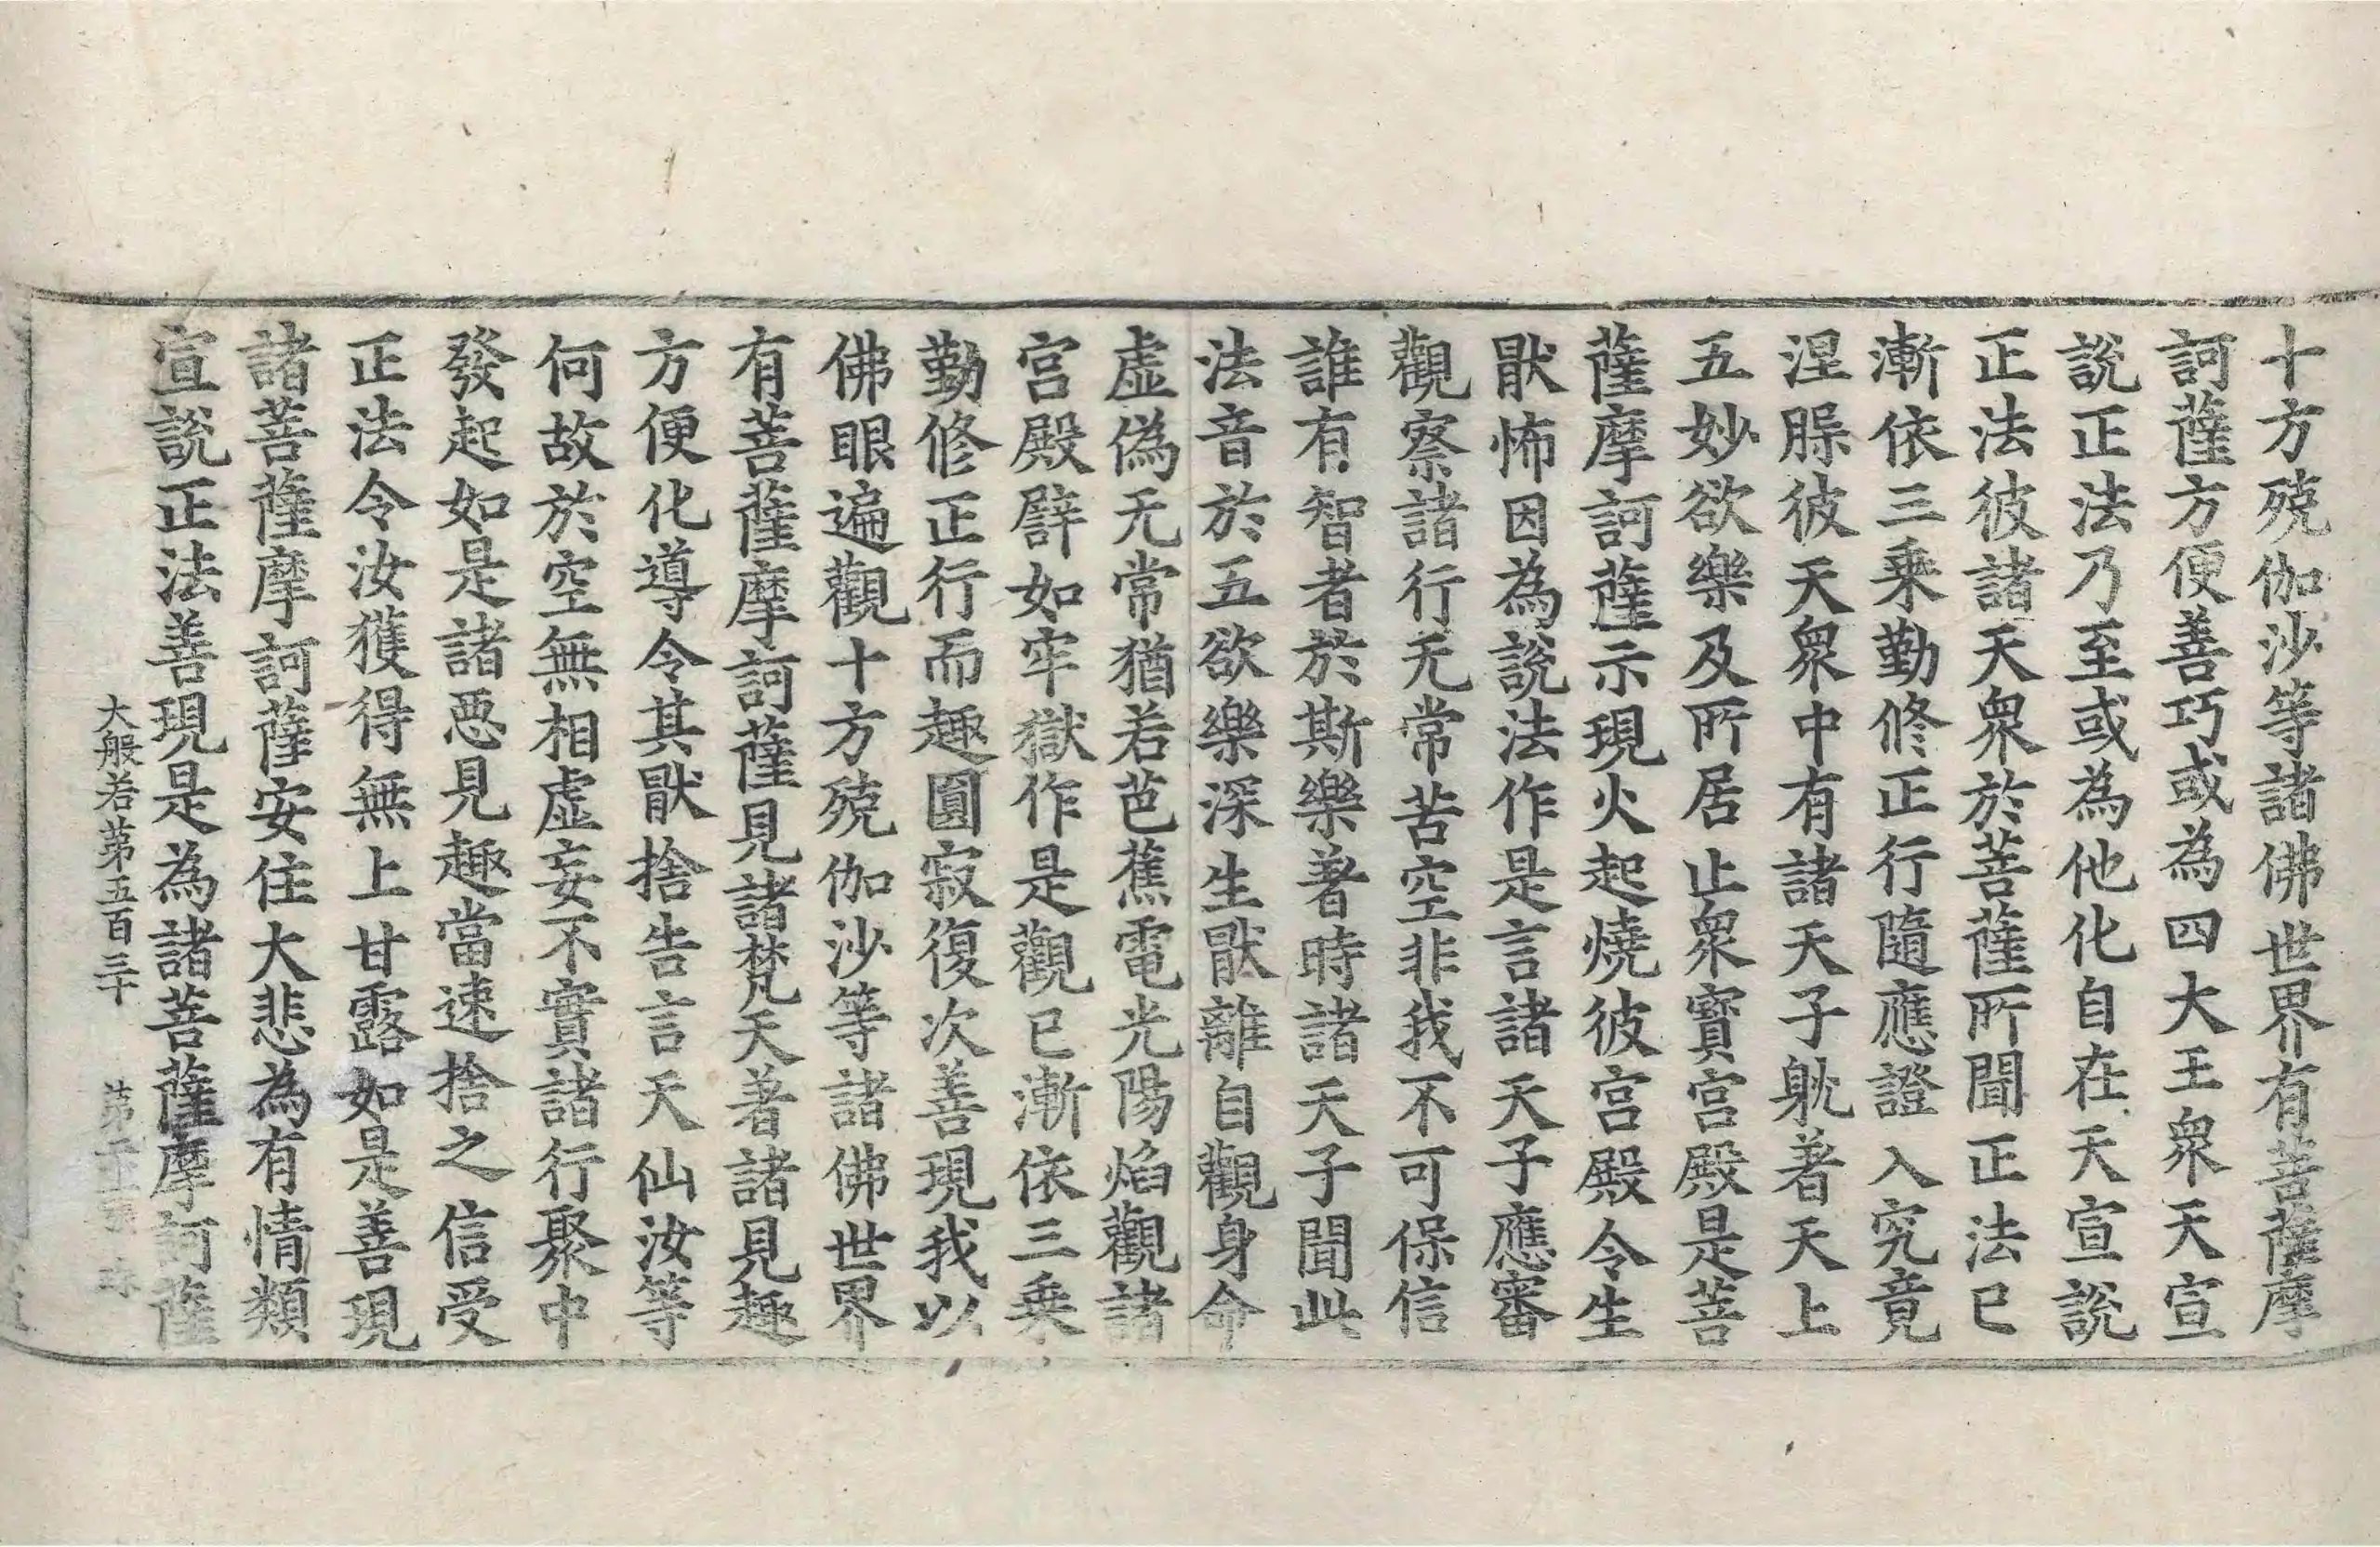 十方殑伽沙等諸佛世界有菩薩摩
訶薩方便善巧或為四大王衆天宣
說正法乃至或為他化自在天宣說
正法彼諸天衆於菩薩所聞正法已
漸依三乗勤修正行隨應證入究竟
涅腬彼天衆中有諸天子躭著天上
五妙欲樂及所居止衆寳宮殿是菩
薩摩訶薩示現火起燒彼宮殿令生
猒怖因為說法作是言諸天子應審
觀察諸行无常苦空非我不可保信
誰有智者於斯樂著時諸天子聞此
法音於五欲樂深生猒離自觀身命
虛偽无常猶若芭蕉電光陽焰觀諸
宮殿譬如牢獄作是觀已漸依三乗
勤修正行而趣圓寂復次善現我以
佛眼遍觀十方殑伽沙等諸佛世界
有菩薩摩訶薩見諸梵天著諸見趣
方便化導令其猒捨告言天仙汝等
何故於空無相虛妄不實諸行聚中
發起如是諸惡見趣當速捨之信受
正法令汝獲得無上甘露如是善現
諸菩薩摩訶薩安住大悲為有情類
宣說正法善現是為諸菩薩摩訶薩
大般若第五百三十 第